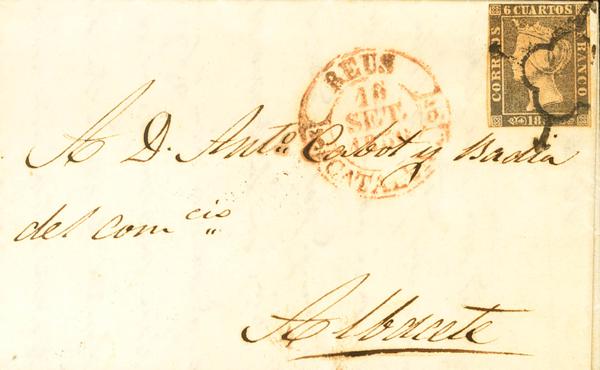 6 CUARTOS
CORREOS
FRANCO
18
REUS
16
SET.
CATAL
A D. Anto. Cabot y Badia
del comcio
Albacete